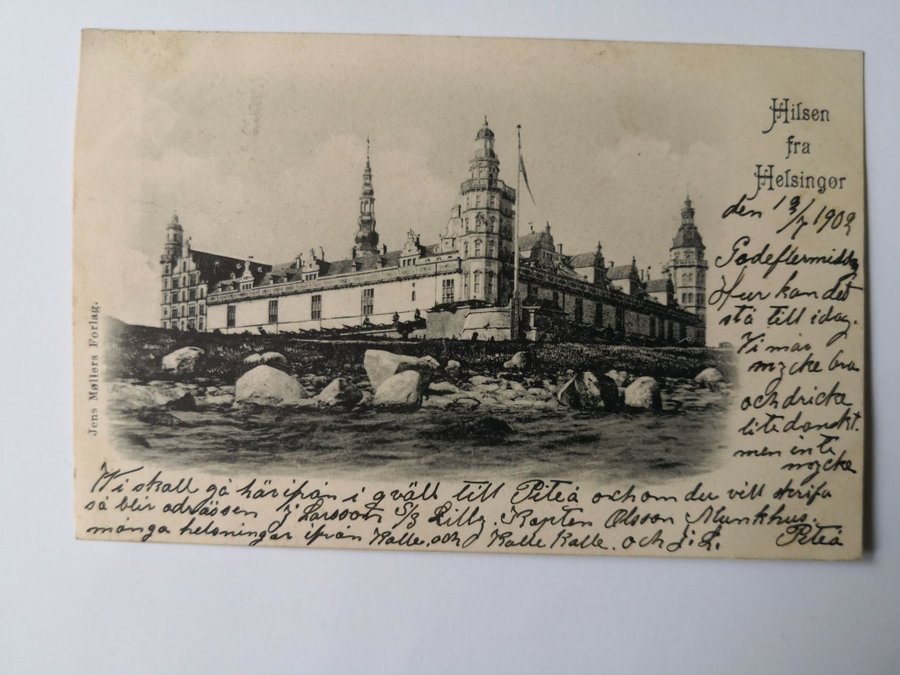 Hilsen
fra
Helsingør
den 19/7 1902
Godeftermidda
Hur kan det
stå till idag.
Vi mår
mycke bra
och dricke
lite danskt.
men inte
mycke
Vi skall gå härifrån i qväll till Piteå och om du vill skrifa
så blir adrässen J Larsson S/S Lilly. Kapten Olsson Munkhus.
Piteå
många helsningar ifrån Kalle. och Kalle Kalle. och J. L.
Jens Møllers Forlag.